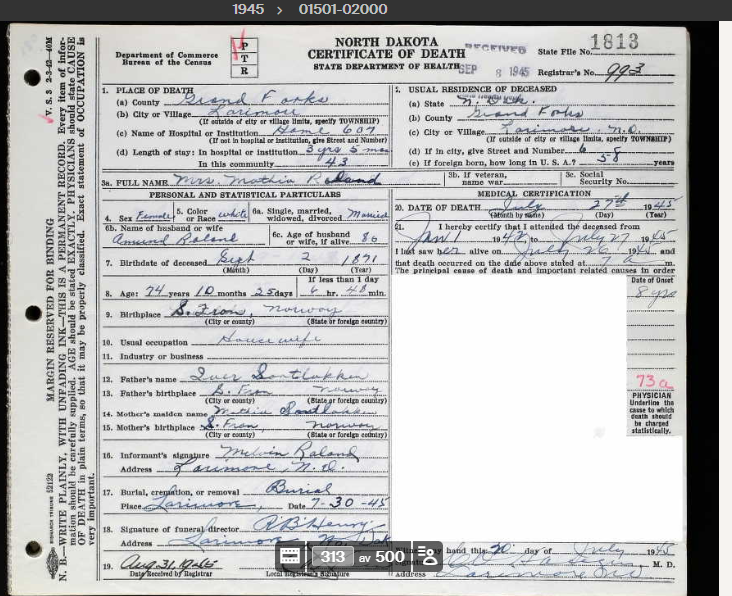 1945 > 01501-02000
Department of Commerce
Bureau of the Census
P
T
R
NORTH DAKOTA
CERTIFICATE OF DEATH
STATE DEPARTMENT OF HEALTH
RECEIVED
SEP 8 1945
State File No. 1813
Registrar's No. 993
1. PLACE OF DEATH
(a) County Grand Forks
(b) City or Village Larimore
(If outside of city or village limits, specify TOWNSHIP)
(c) Name of Hospital or Institution Home 607
(If not in hospital or institution, give Street and Number)
(d) Length of stay: In hospital or institution 5 yrs 5 mos
In this community 43
2. USUAL RESIDENCE OF DECEASED
(a) State N. Dak.
(b) County Grand Forks
(c) City or Village Larimore, N.D.
(If outside of city or village limits, specify TOWNSHIP)
(d) If in city, give Street and Number
(e) If foreign born, how long in U. S. A.? 58 years
3a. FULL NAME Mrs. Mathia Roland
3b. If veteran, name war
3c. Social Security No.
PERSONAL AND STATISTICAL PARTICULARS
4. Sex Female 5. Color or Race white 6a. Single, married, widowed, divorced Married
6b. Named of husband or wife Amund Roland
6c. Age of husband or wife, if alive 86
7. Birthdate of deceased Sept 2 1871
(Month) (Day) (Year)
8. Age: 74 years 10 months 25 days If less than 1 day 6 hr. 40 min.
9. Birthplace S. Fron, Norway
(City or county) (State or foreign country)
10. Usual occupation Housewife
11. Industry or business
12. Father's name Iver
13. Father's birthplace S. Fron Norway
(City or county) (State or foreign country)
14. Mother's maiden name Mathia
15. Mother's birthplace S. Fron, Norway
(City or county) (State or foreign country)
16. Informant's signature Melvin Roland
Address Larimore, N.D.
17. Burial, cremation, or removal Burial
Place Larimore, Date 7-30-45
18. Signature of funeral director Henry
Address Larimore No. Dak
19. Aug. 31, 1945
Date Received by Registrar Local Registrar's Signature
MEDICAL CERTIFICATION
20. DATE OF DEATH July 27th 1945
(Month by name) (Day) (Year)
21. I hereby certify that I attended the deceased from
Jan 1 1942, to July 27 1945
I last saw her alive on July 26 1945 and
that death occurred on the date above stated at 7 a m.
The principal cause of death and important related causes in order
Date of Onset
8 yrs
73a
PHYSICIAN
Underline the cause to which death should be charged statistically.
hand this day of July 1945
M. D.
Address Larimore ND
313 av 500
V. S. 3 2-3-42-40M
MARGIN RESERVED FOR BINDING
N. B.—WRITE PLAINLY, WITH UNFADING INK—THIS IS A PERMANENT RECORD. Every item of information should be carefully supplied. AGE should be stated EXACTLY. PHYSICIANS should state CAUSE OF DEATH in plain terms, so that it may be properly classified. Exact statement of OCCUPATION is very important.